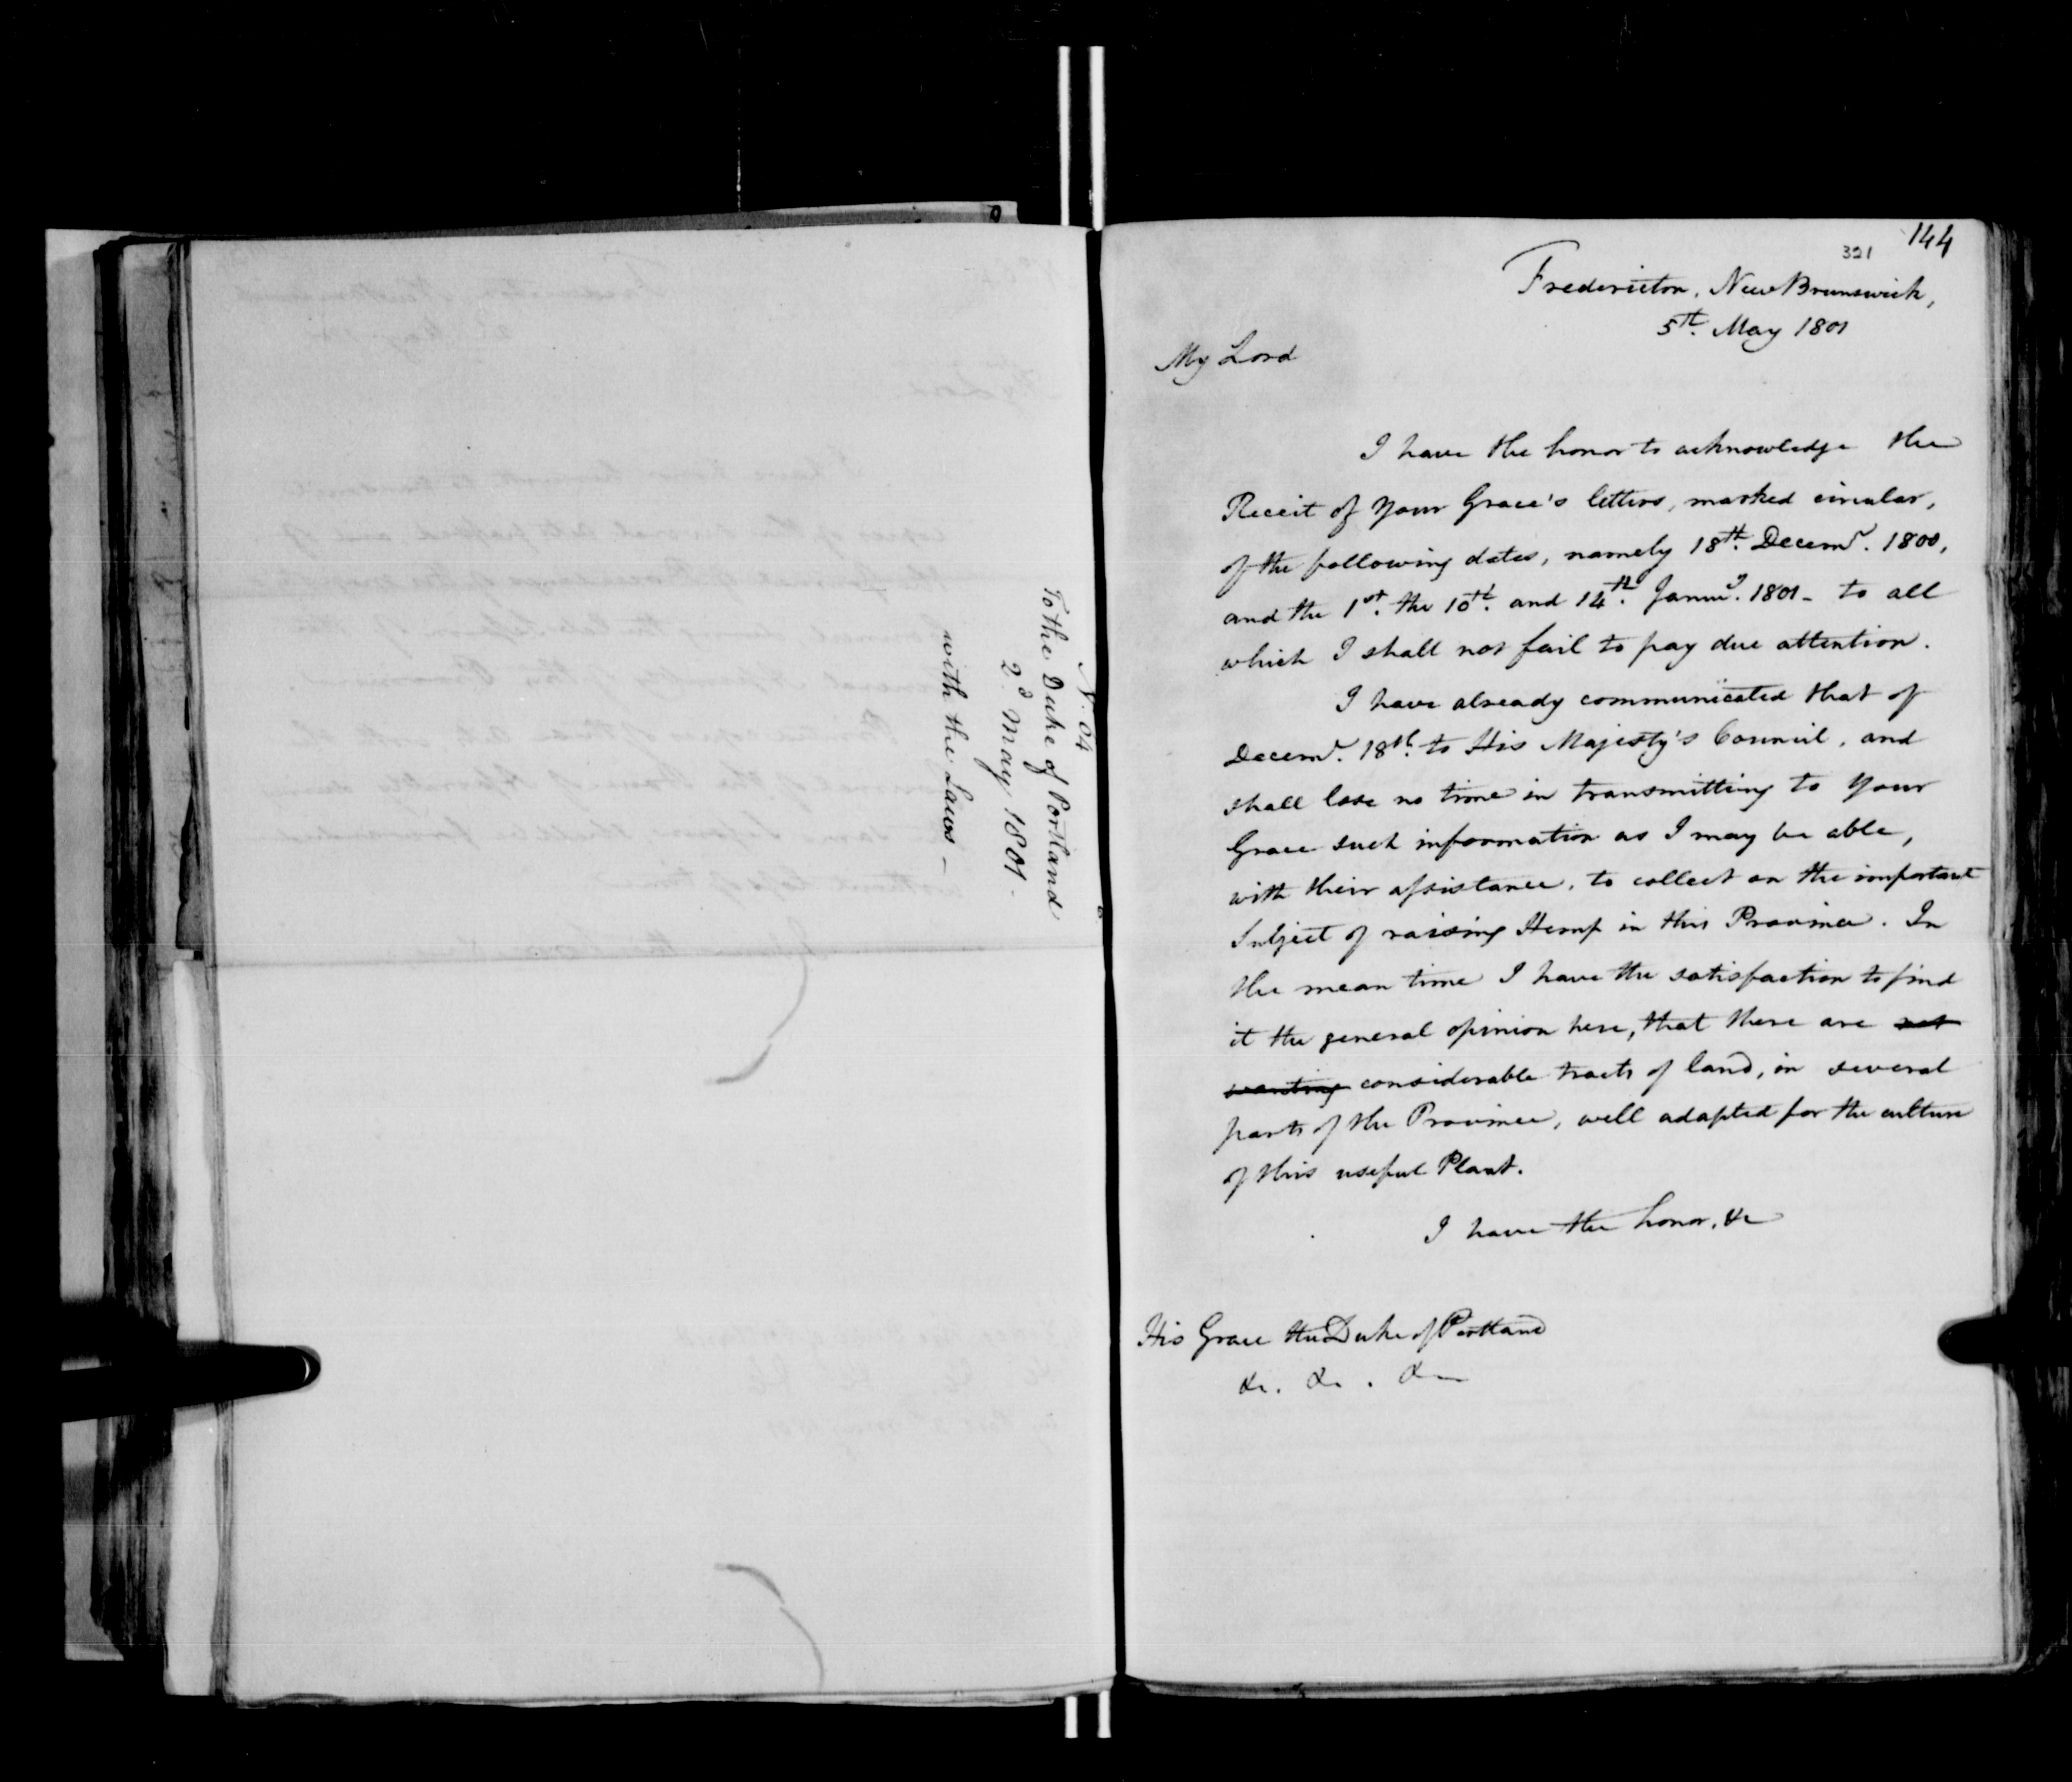 N. 64
To the Duke of Portland
2d. May 1801.
with the Laws —
144
321
Fredericton, New Brunswick,
5th. May 1801
My Lord
I have the honor to acknowledge the
Receit of Your Grace's letters, marked circular,
of the following dates, namely 18th. Decemr. 1800,
and the 1st. the 10th. and 14th. Januy. 1801 - to all
which I shall not fail to pay due attention.
I have already communicated that of
Decemr. 18th. to His Majesty's Council, and
shall lose no time in transmitting to Your
Grace such information as I may be able,
with their assistance, to collect on the important
Subject of raising Hemp in this Province. In
the mean time I have the satisfaction to find
it the general opinion here, that there are not
wanting considerable tracts of land, in several
parts of the Province, well adapted for the culture
of this useful Plant.
I have the honor, &c
His Grace the Duke of Portland
&c. &c. &c